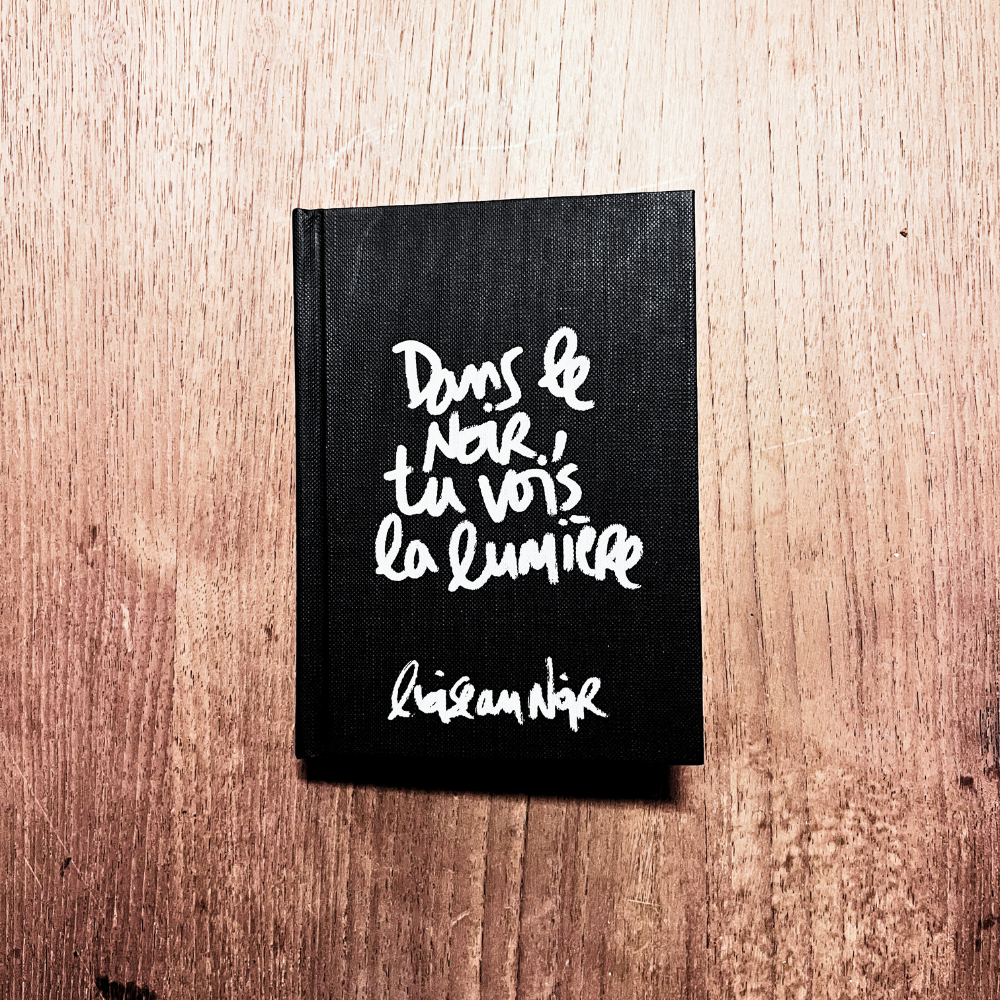 Dans le
NOIR,
tu vois
la lumière
l'oiseau NOIR